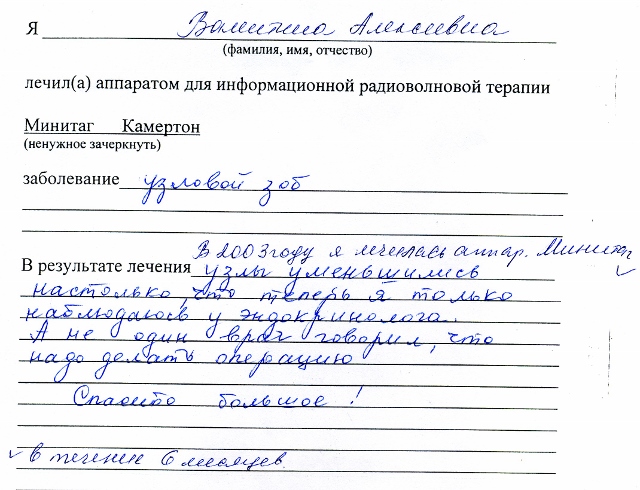 Я Валентина Алексеевна
(фамилия, имя, отчество)
лечил(а) аппаратом для информационной радиоволновой терапии
Минитаг Камертон
(ненужное зачеркнуть)
заболевание узловой зоб
В 2003 году я лечилась аппар. Минитаг
В результате лечения узлы уменьшились
настолько, что теперь я только
наблюдаюсь у эндокринолога.
А не один врач говорил, что
надо делать операцию
Спасибо большое!
в течении 6 месяцев